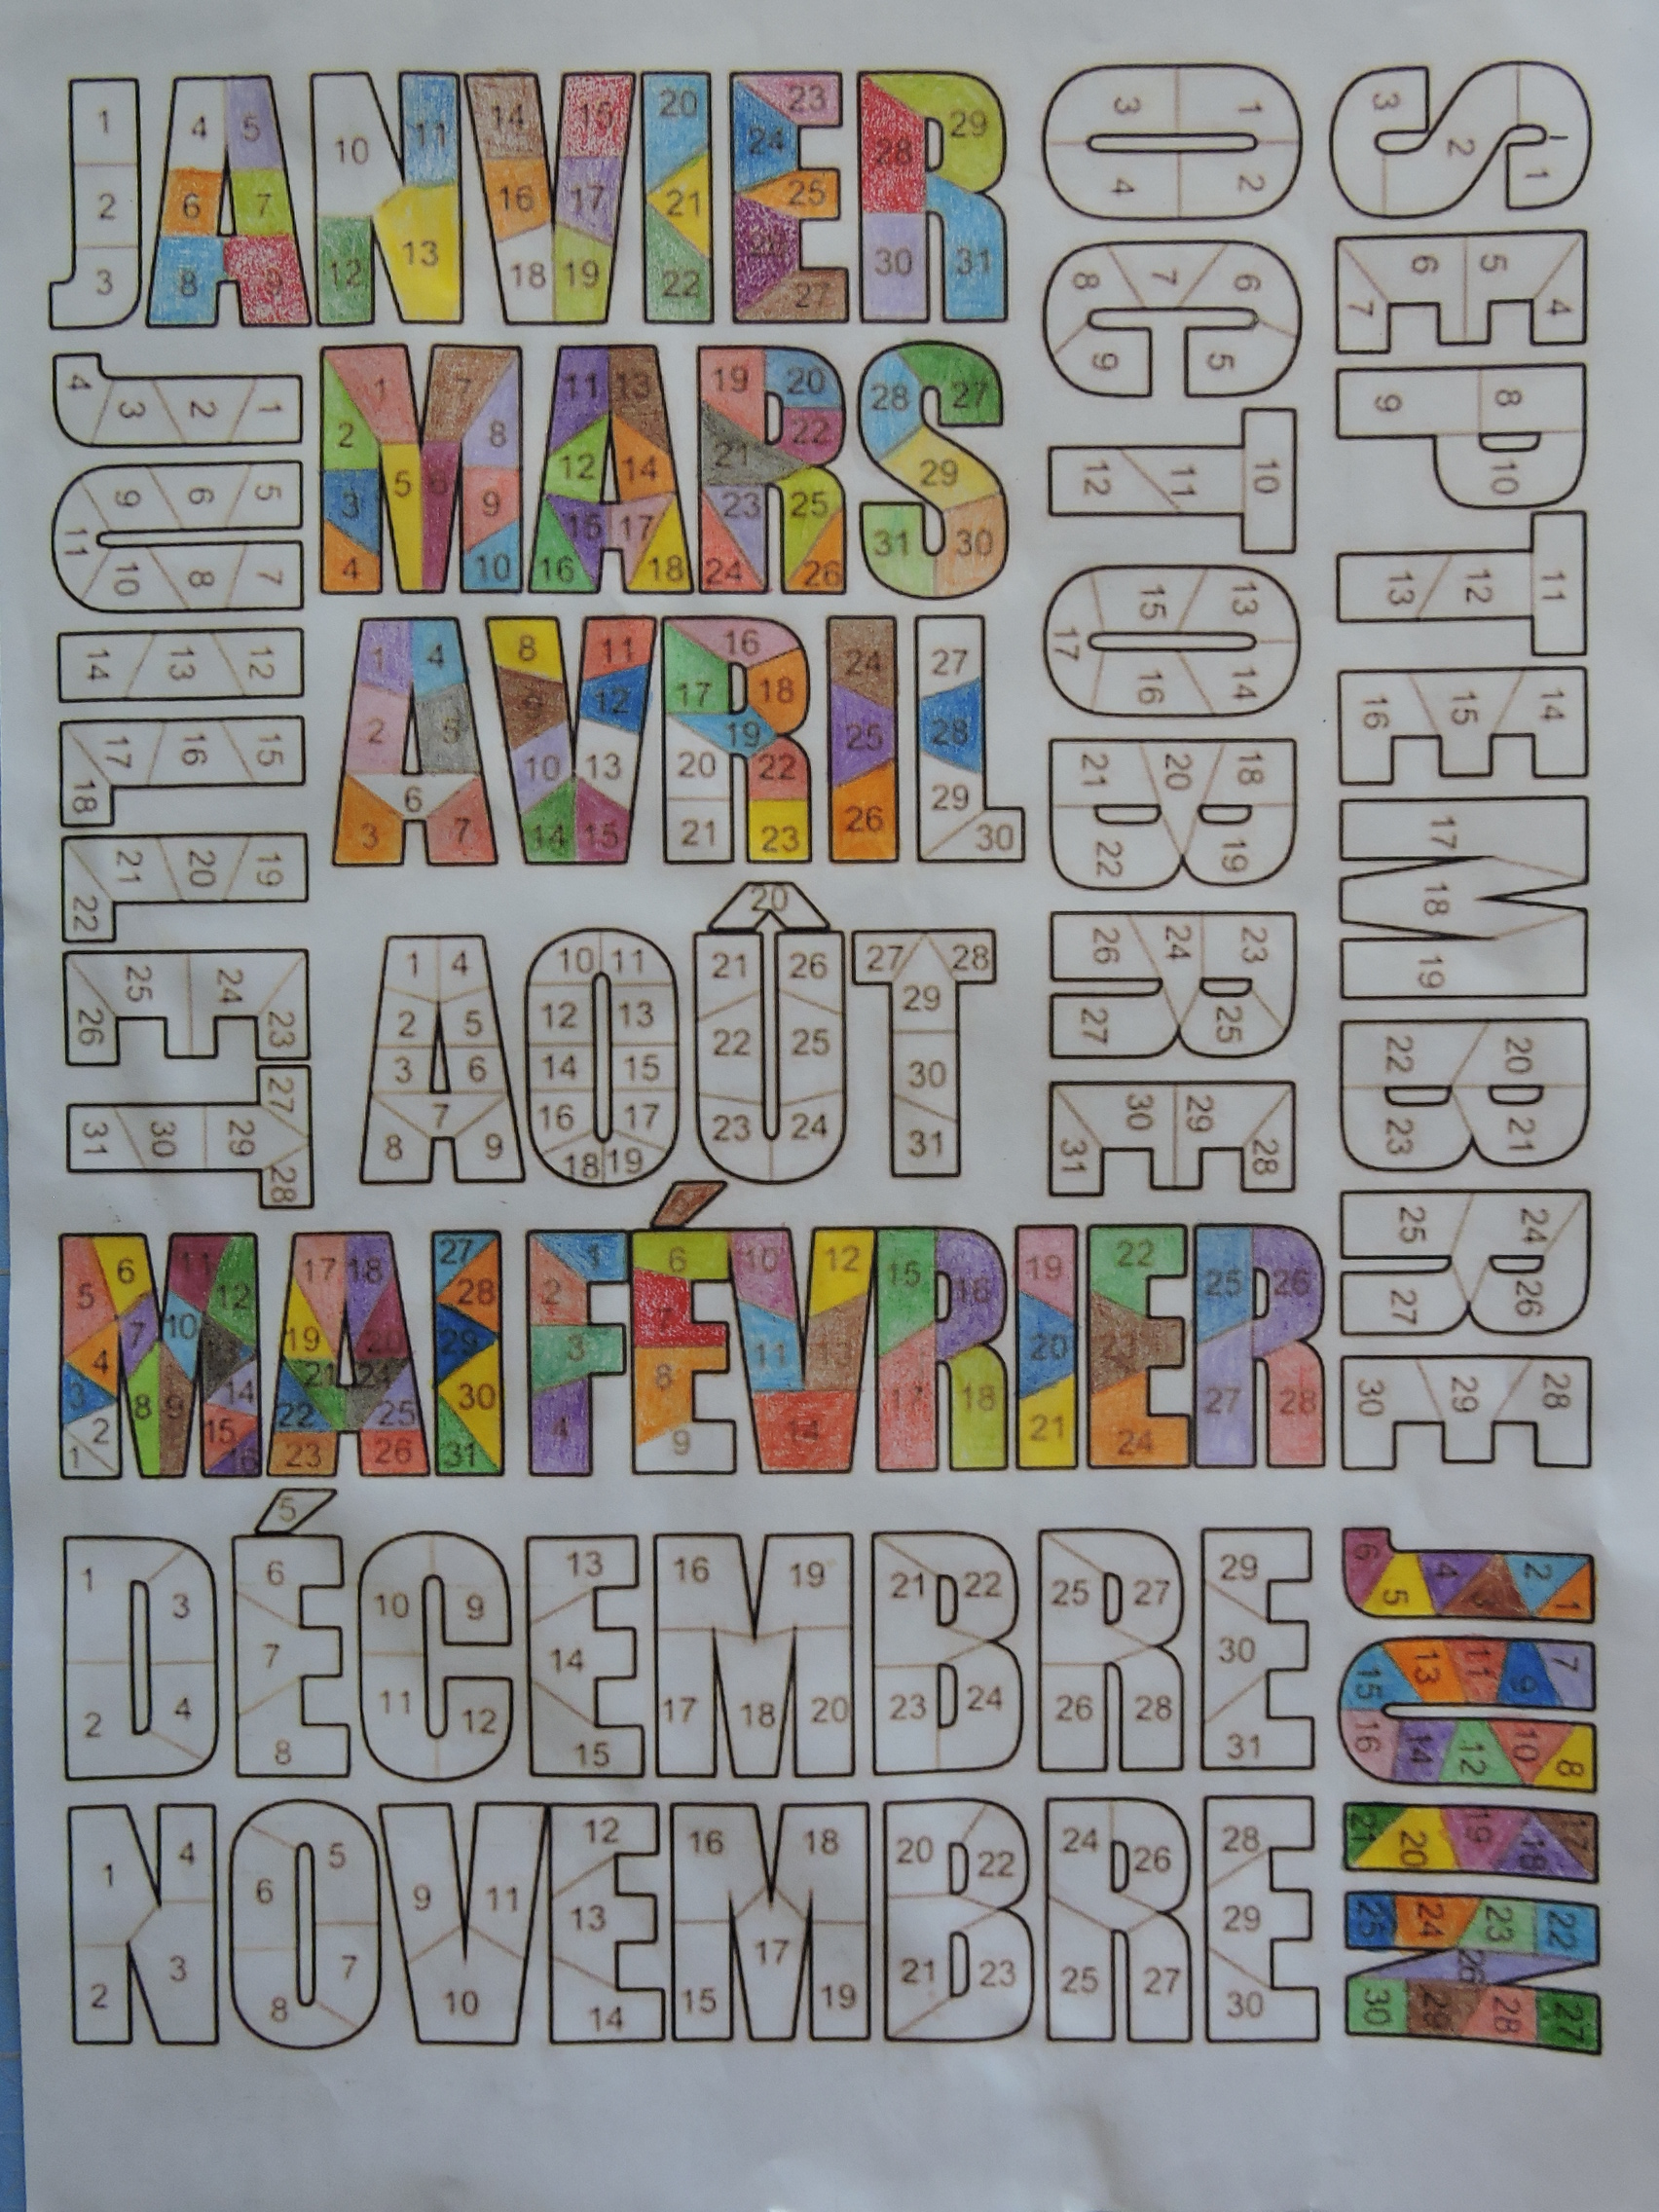 JANVIER
1 2 3 4 5 6 7 8 9 10 11 12 13 14 15 16 17 18 19 20 21 22 23 24 25 26 27 28 29 30 31
MARS
1 2 3 4 5 6 7 8 9 10 11 12 13 14 15 16 17 18 19 20 21 22 23 24 25 26 27 28 29 30 31
AVRIL
1 2 3 4 5 6 7 8 9 10 11 12 13 14 15 16 17 18 19 20 21 22 23 24 25 26 27 28 29 30
JUILLET
1 2 3 4 5 6 7 8 9 10 11 12 13 14 15 16 17 18 19 20 21 22 23 24 25 26 27 28 29 30 31
AOÛT
1 2 3 4 5 6 7 8 9 10 11 12 13 14 15 16 17 18 19 20 21 22 23 24 25 26 27 28 29 30 31
OCTOBRE
1 2 3 4 5 6 7 8 9 10 11 12 13 14 15 16 17 18 19 20 21 22 23 24 25 26 27 28 29 30 31
SEPTEMBRE
1 2 3 4 5 6 7 8 9 10 11 12 13 14 15 16 17 18 19 20 21 22 23 24 25 26 27 28 29 30
MAI
1 2 3 4 5 6 7 8 9 10 11 12 13 14 15 16 17 18 19 20 21 22 23 24 25 26 27 28 29 30 31
FÉVRIER
1 2 3 4 6 7 8 9 10 11 12 13 14 15 16 17 18 19 20 21 22 23 24 25 26 27 28
DÉCEMBRE
1 2 3 4 5 6 7 8 9 10 11 12 13 14 15 16 17 18 19 20 21 22 23 24 25 26 27 28 29 30 31
NOVEMBRE
1 2 3 4 5 6 7 8 9 10 11 12 13 14 15 16 17 18 19 20 21 22 23 24 25 26 27 28 29 30
JUIN
1 2 3 4 5 6 7 8 9 10 11 12 13 14 15 16 17 18 19 20 21 22 23 24 25 26 27 28 29 30